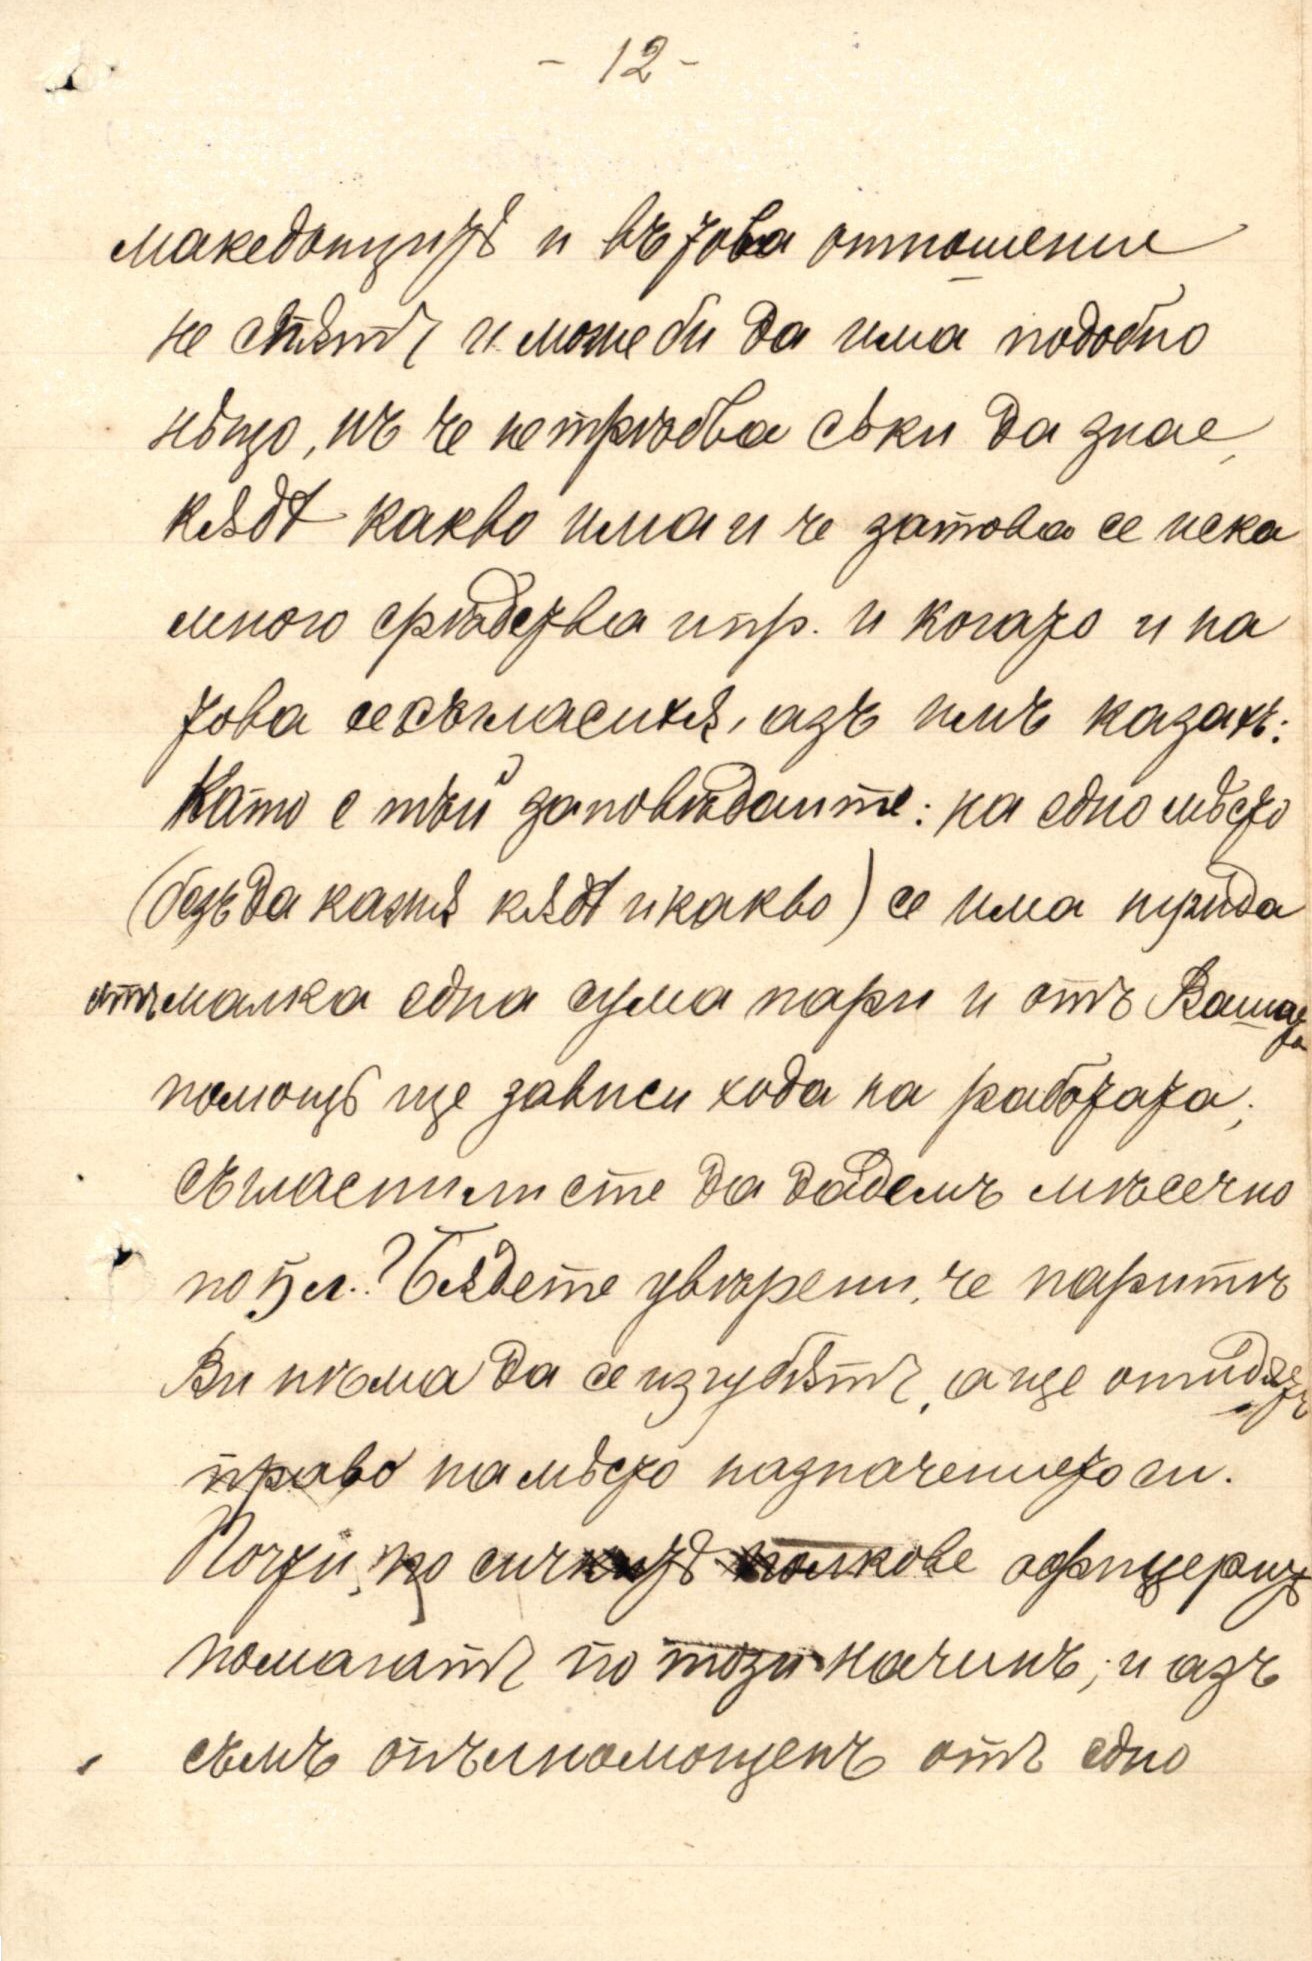 - 12 -
македонцитѣ и въ това отношение
не спѭтъ и може би да има подобно
нѣщо, нъ че не трѣбва сѣки да знае,
кѫдѣ какво има и че затова се иска
много срѣдства и пр. и когато и на
това се съгласихѫ, азъ имъ казахъ:
Като е тъй заповѣдайте: на едно мѣсто
(безъ да кажѫ кѫдѣ и какво) се има нужда
отъ малка една сума пари и отъ Вашата
помощь ще зависи хода на работата;
съгласни ли сте да дадемъ мѣсечно
по 5 л..? Бѫдете увѣрени, че паритѣ
Ви нѣма да се изгубѭтъ, а ще отидѫтъ
право на мѣсто назначението си.
Почти по сичкитѣ полкове офицеритѣ
помагатъ по този начинъ; и азъ
съмъ опълномощенъ отъ едно